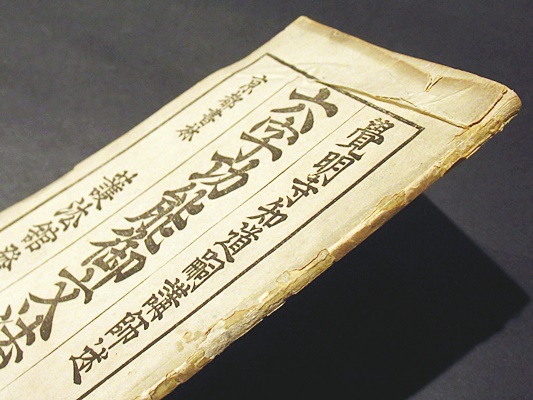 覺明寺知道嗣講師述
六字功能御文法
京都書林 護法館發